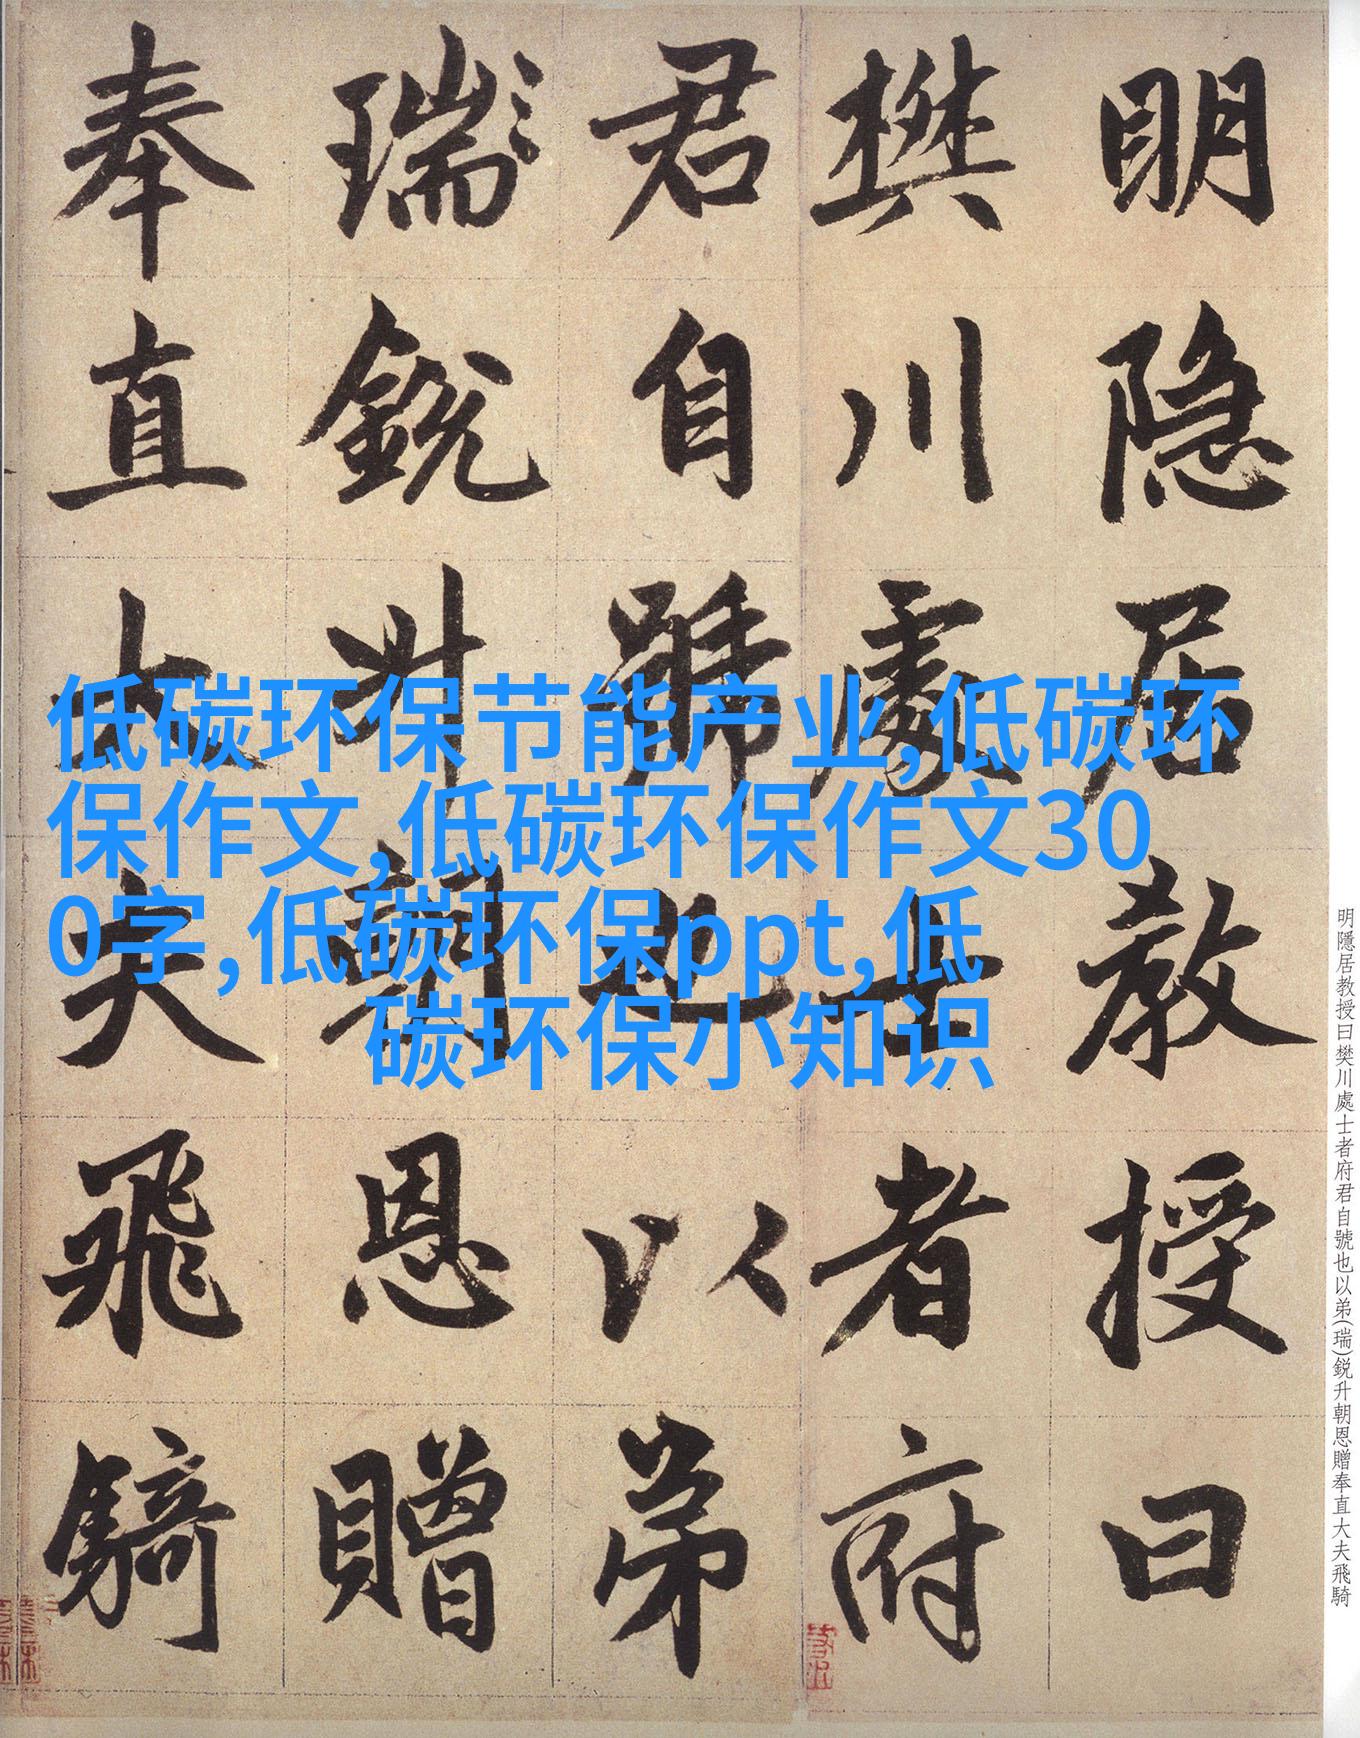 明隐居教授曰
樊川處士者府
君自號也以弟
瑞銳升朝恩贈
奉直大夫飛騎
低碳环保节能产业,低碳环
保作文,低碳环保作文30
0字,低碳环保ppt,低
碳环保小知识
明隱居教授曰樊川處士者府君自號也以弟(瑞)鋭升朝恩贈奉直大夫飛騎